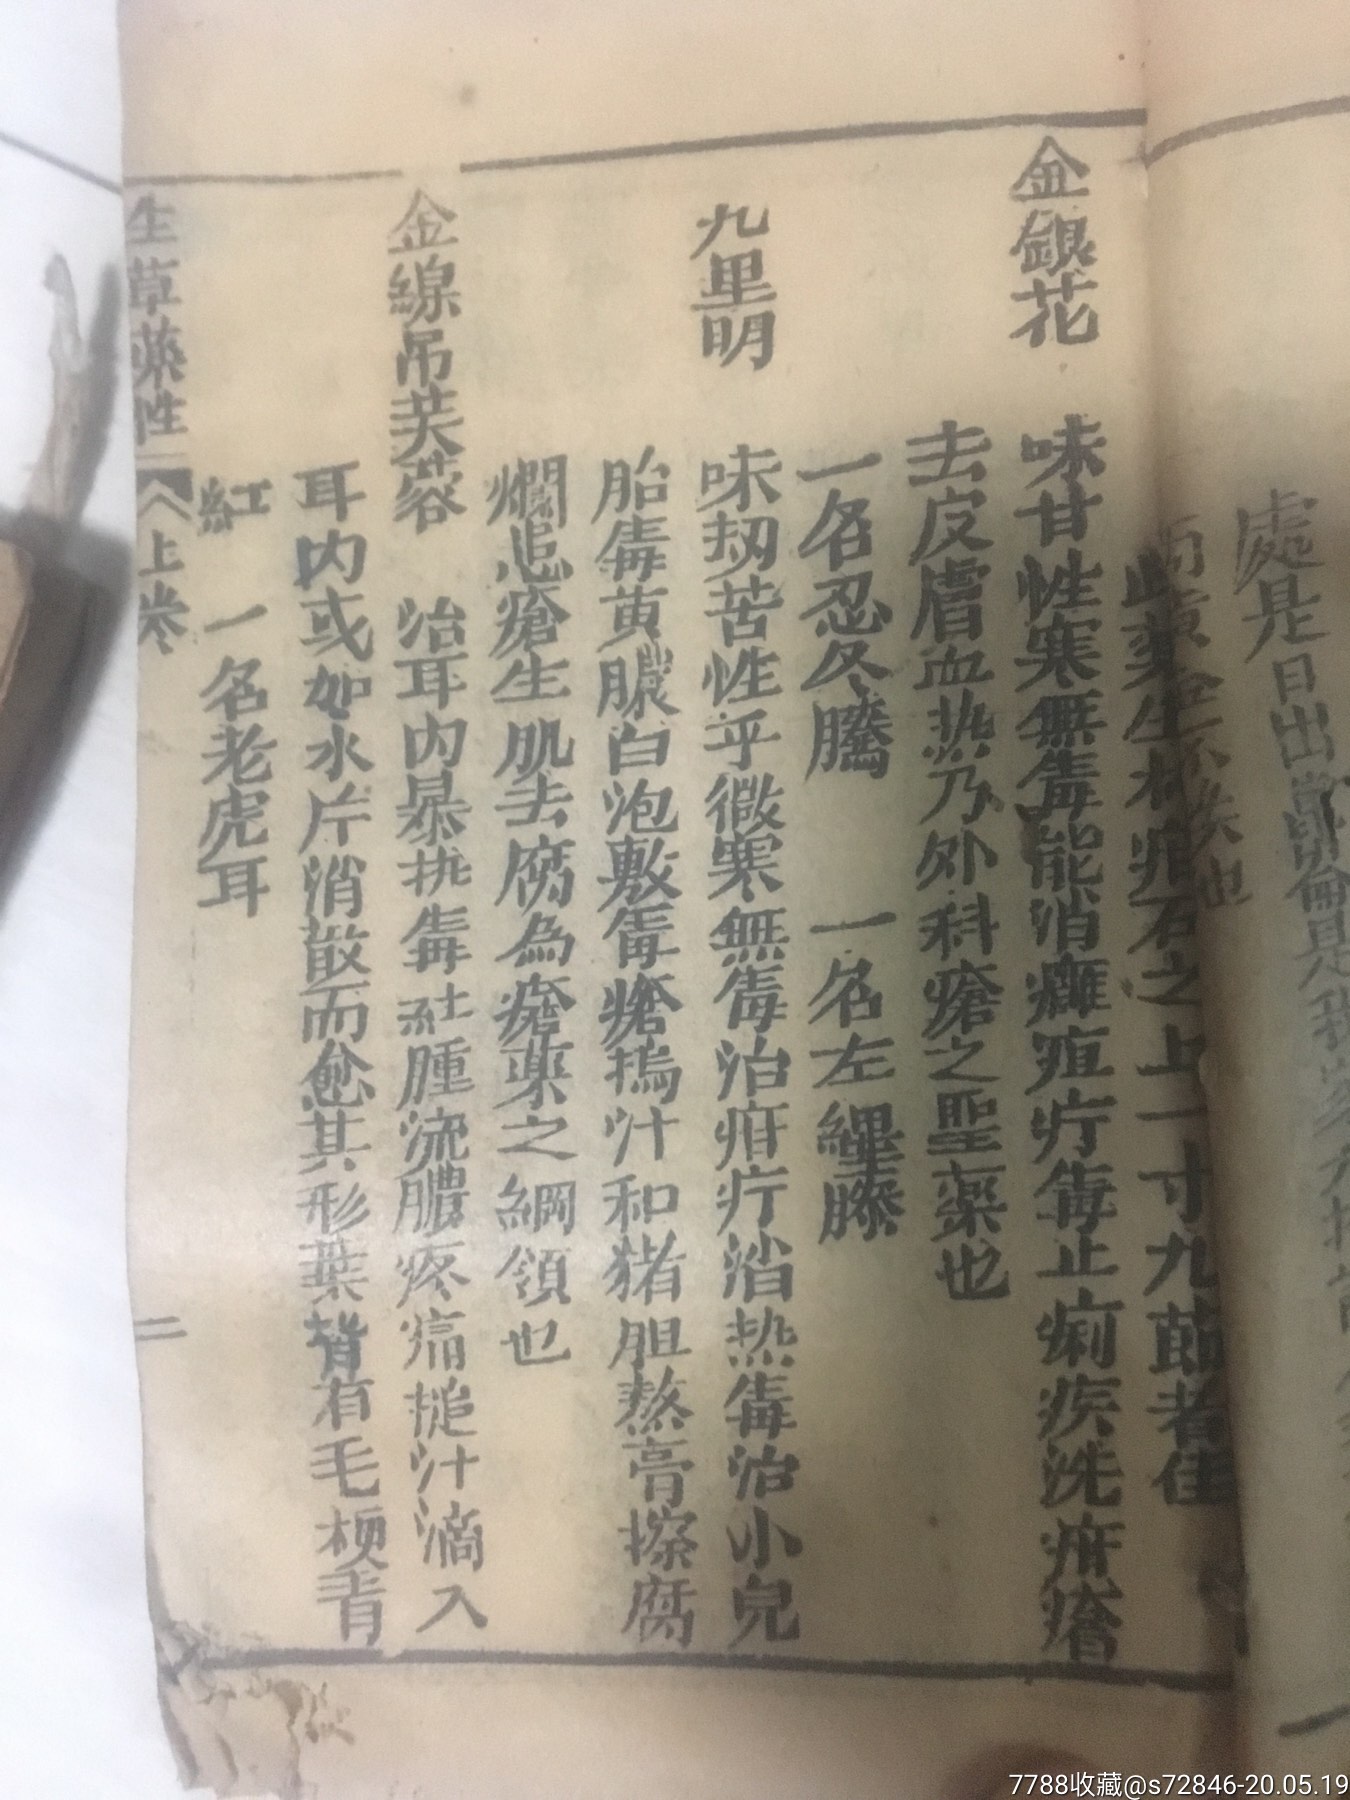 處是日出
此藥生於疳石之上一寸九節者佳
金銀花
味甘性寒無毒能消癰疽疔毒止痢疾洗疳瘡
去皮膚血热乃外科瘡之聖藥也
一名忍冬騰 一名左纏藤
九里明
味刼苦性平微寒無毒治疳疔消热毒治小兒
胎毒黄膿白泡敷毒瘡搗汁和猪胆熬膏擦腐
爛悪瘡生肌去腐為瘡藥之綱領也
金線吊芙蓉
治耳内暴热毒紅腫流膿疼痛搥汁滴入
耳内或如水片消散而愈其形葉背有毛梗青
紅 一名老虎耳
生草藥性 上卷 二
7788收藏@s72846-20.05.19